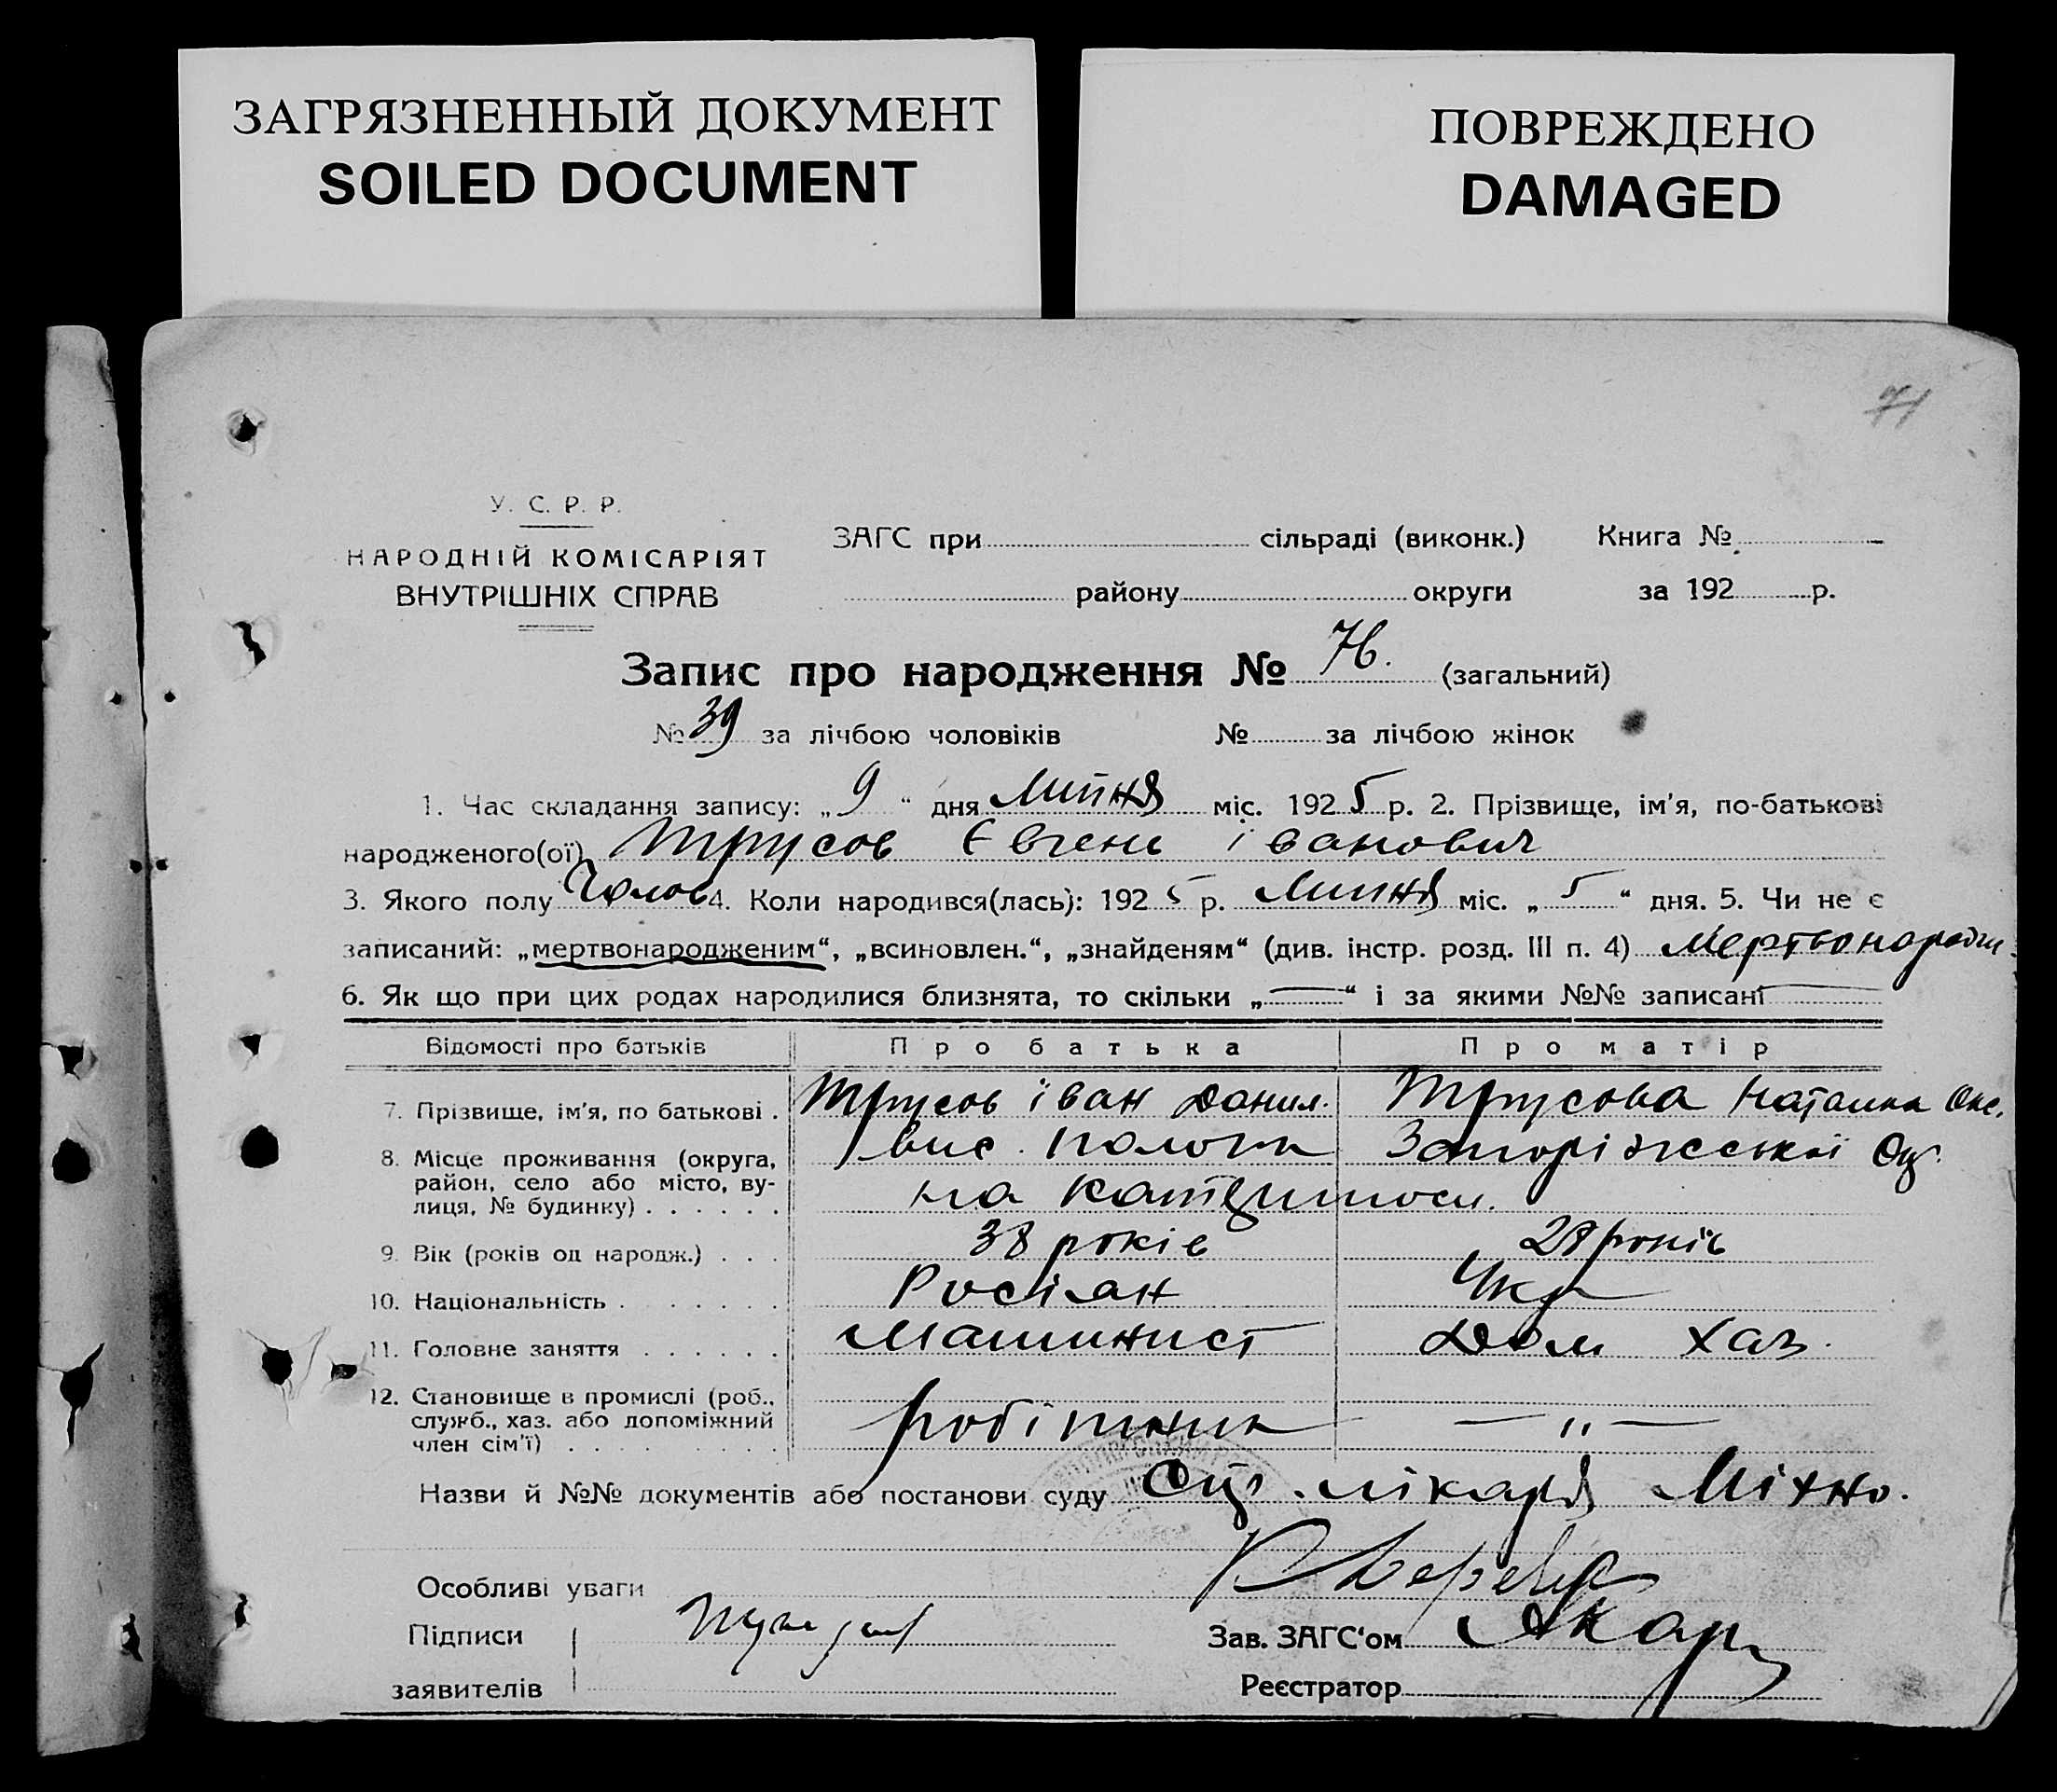 ЗАГРЯЗНЕННЫЙ ДОКУМЕНТ
SOILED DOCUMENT
ПОВРЕЖДЕНО
DAMAGED
71
У. С. Р. Р.
НАРОДНІЙ КОМІСАРІЯТ
ВНУТРІШНІХ СПРАВ
ЗАГС при сільраді (виконк.) Книга №
району округи за 192 р.
Запис про народження № 76. (загальний)
№ 39 за лічбою чоловіків № за лічбою жінок
1. Час складання запису: „ 9 “ дня Липня міс. 192 5 р. 2. Прізвище, ім'я, по-батькові
народженого(ої) Трусов Євгень Іванович
3. Якого полу Чолов 4. Коли народився(лась): 192 5 р. Липня міс. „ 5 “ дня. 5. Чи не є
записаний: „мертвонародженим“, „всиновлен.“, „знайденям“ (див. інстр. розд. III п. 4) Мертвонародж
6. Як що при цих родах народилися близнята, то скільки „ — “ і за якими №№ записані —
Відомості про батьків Про батька Про матір
7. Прізвище, ім'я, по батькові . Трусов Іван Данил. Трусова Наталка
8. Місце проживання (округа, вис. Пологи Запоріжської Ок.
район, село або місто, ву-
лиця, № будинку) . . . . . . на
9. Вік (років од народж.) . . . 38 років 28 років
10. Національність . . . . . . . Росіян Укр
11. Головне заняття . . . . . . Машинист Дом Хаз.
12. Становище в промислі (роб.,
служб., хаз. або допоміжний робітник — „ —
член сім'ї) . . . . . . . . .
Назви й №№ документів або постанови суду лікаря Міхно.
Особливі уваги
Підписи Зав. ЗАГС'ом
заявителів Реєстратор